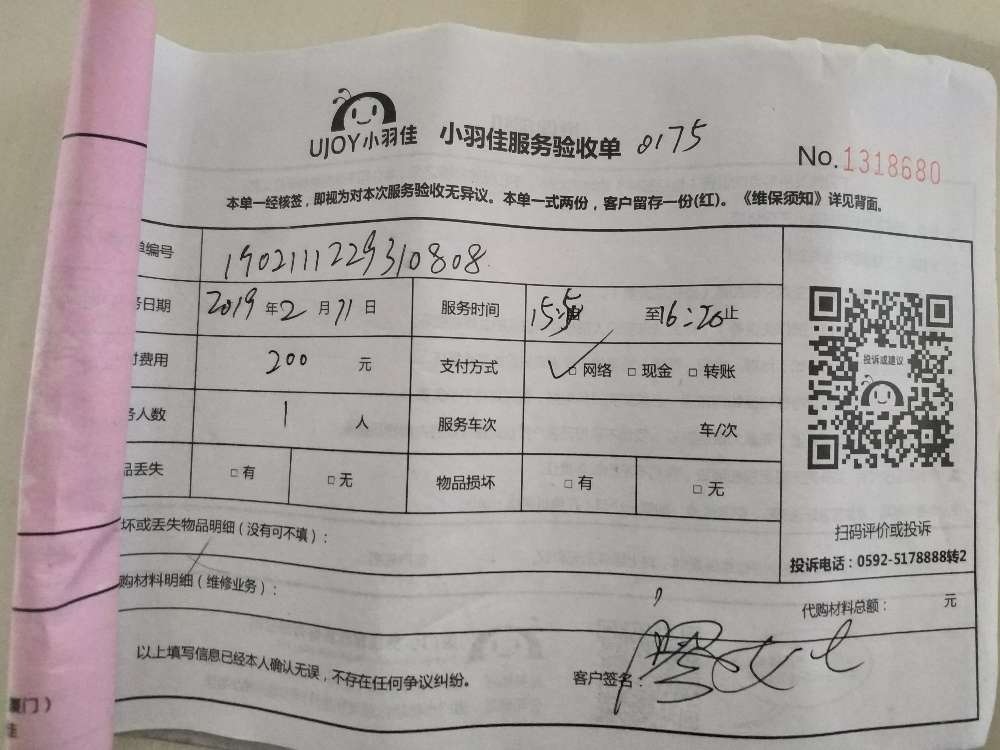 UJOY小羽佳 小羽佳服务验收单 0175
No.1318680
本单一经核签，即视为对本次服务验收无异议。本单一式两份，客户留存一份(红)。《维保须知》详见背面。
单编号 1902111229310808
务日期 2019年2月11日 服务时间 15:5 至16:20止
付费用 200 元 支付方式 ✓□网络 □现金 □转账
务人数 1 人 服务车次 车/次
品丢失 □有 □无 物品损坏 □有 □无
投诉或建议
扫码评价或投诉
投诉电话：0592-5178888转2
坏或丢失物品明细（没有可不填）：
购材料明细（维修业务）：
代购材料总额： 元
以上填写信息已经本人确认无误，不存在任何争议纠纷。 客户签名：
厦门）
佳